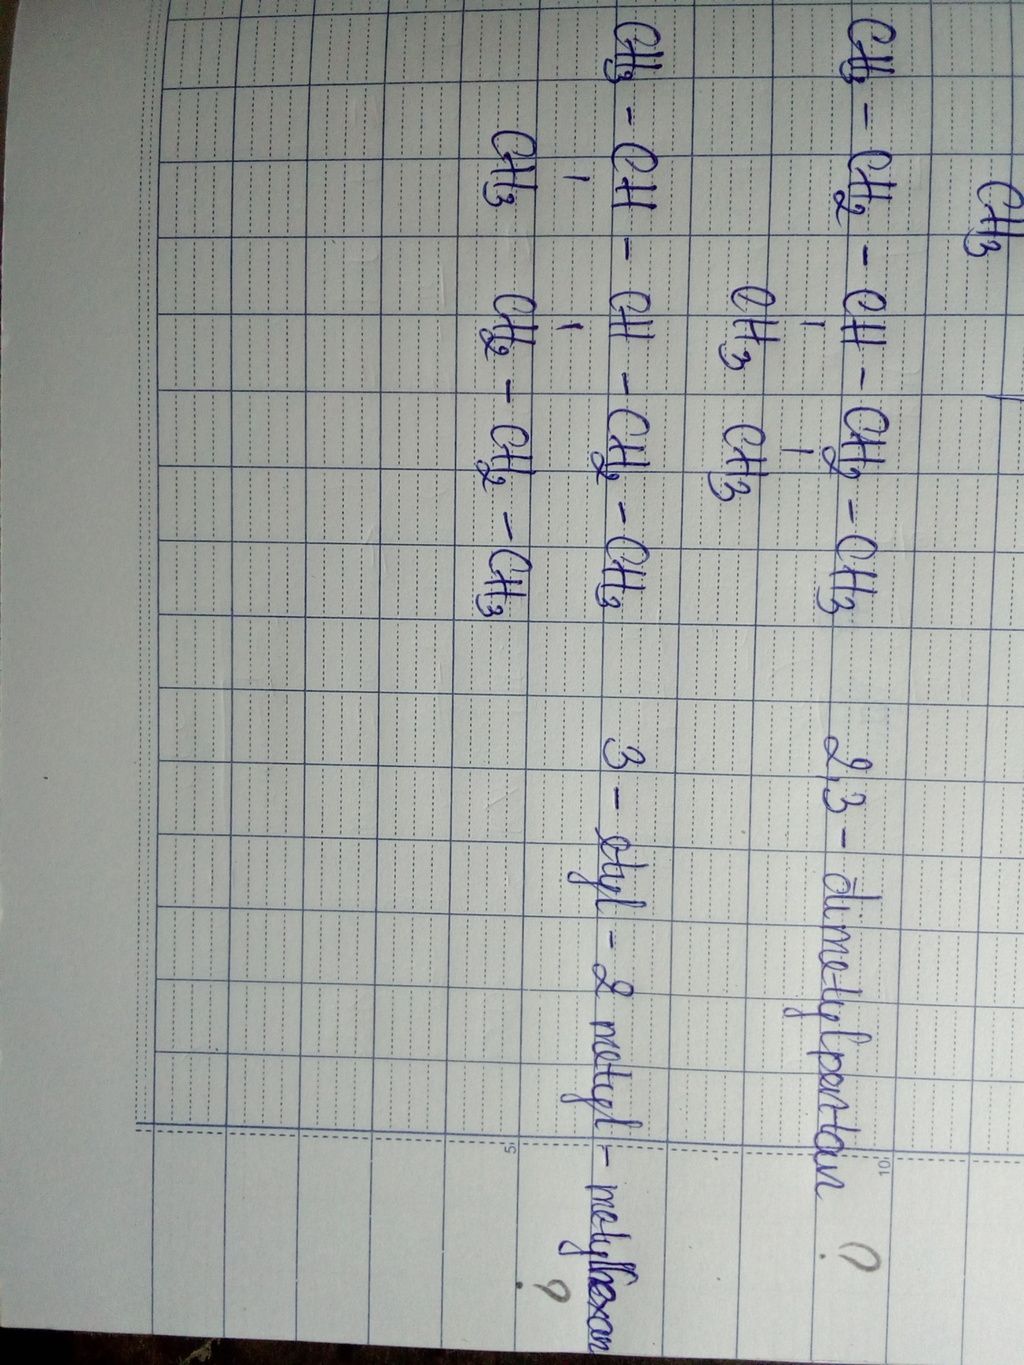 CH3
CH3 - CH2 - CH - CH2 - CH3 2,3 - đimetylpentan ?
CH3 CH3
CH3 - CH - CH - CH2 - CH3 3 - etyl - 2 metyl - metylhexan ?
CH3 CH2 - CH2 - CH3
10
5